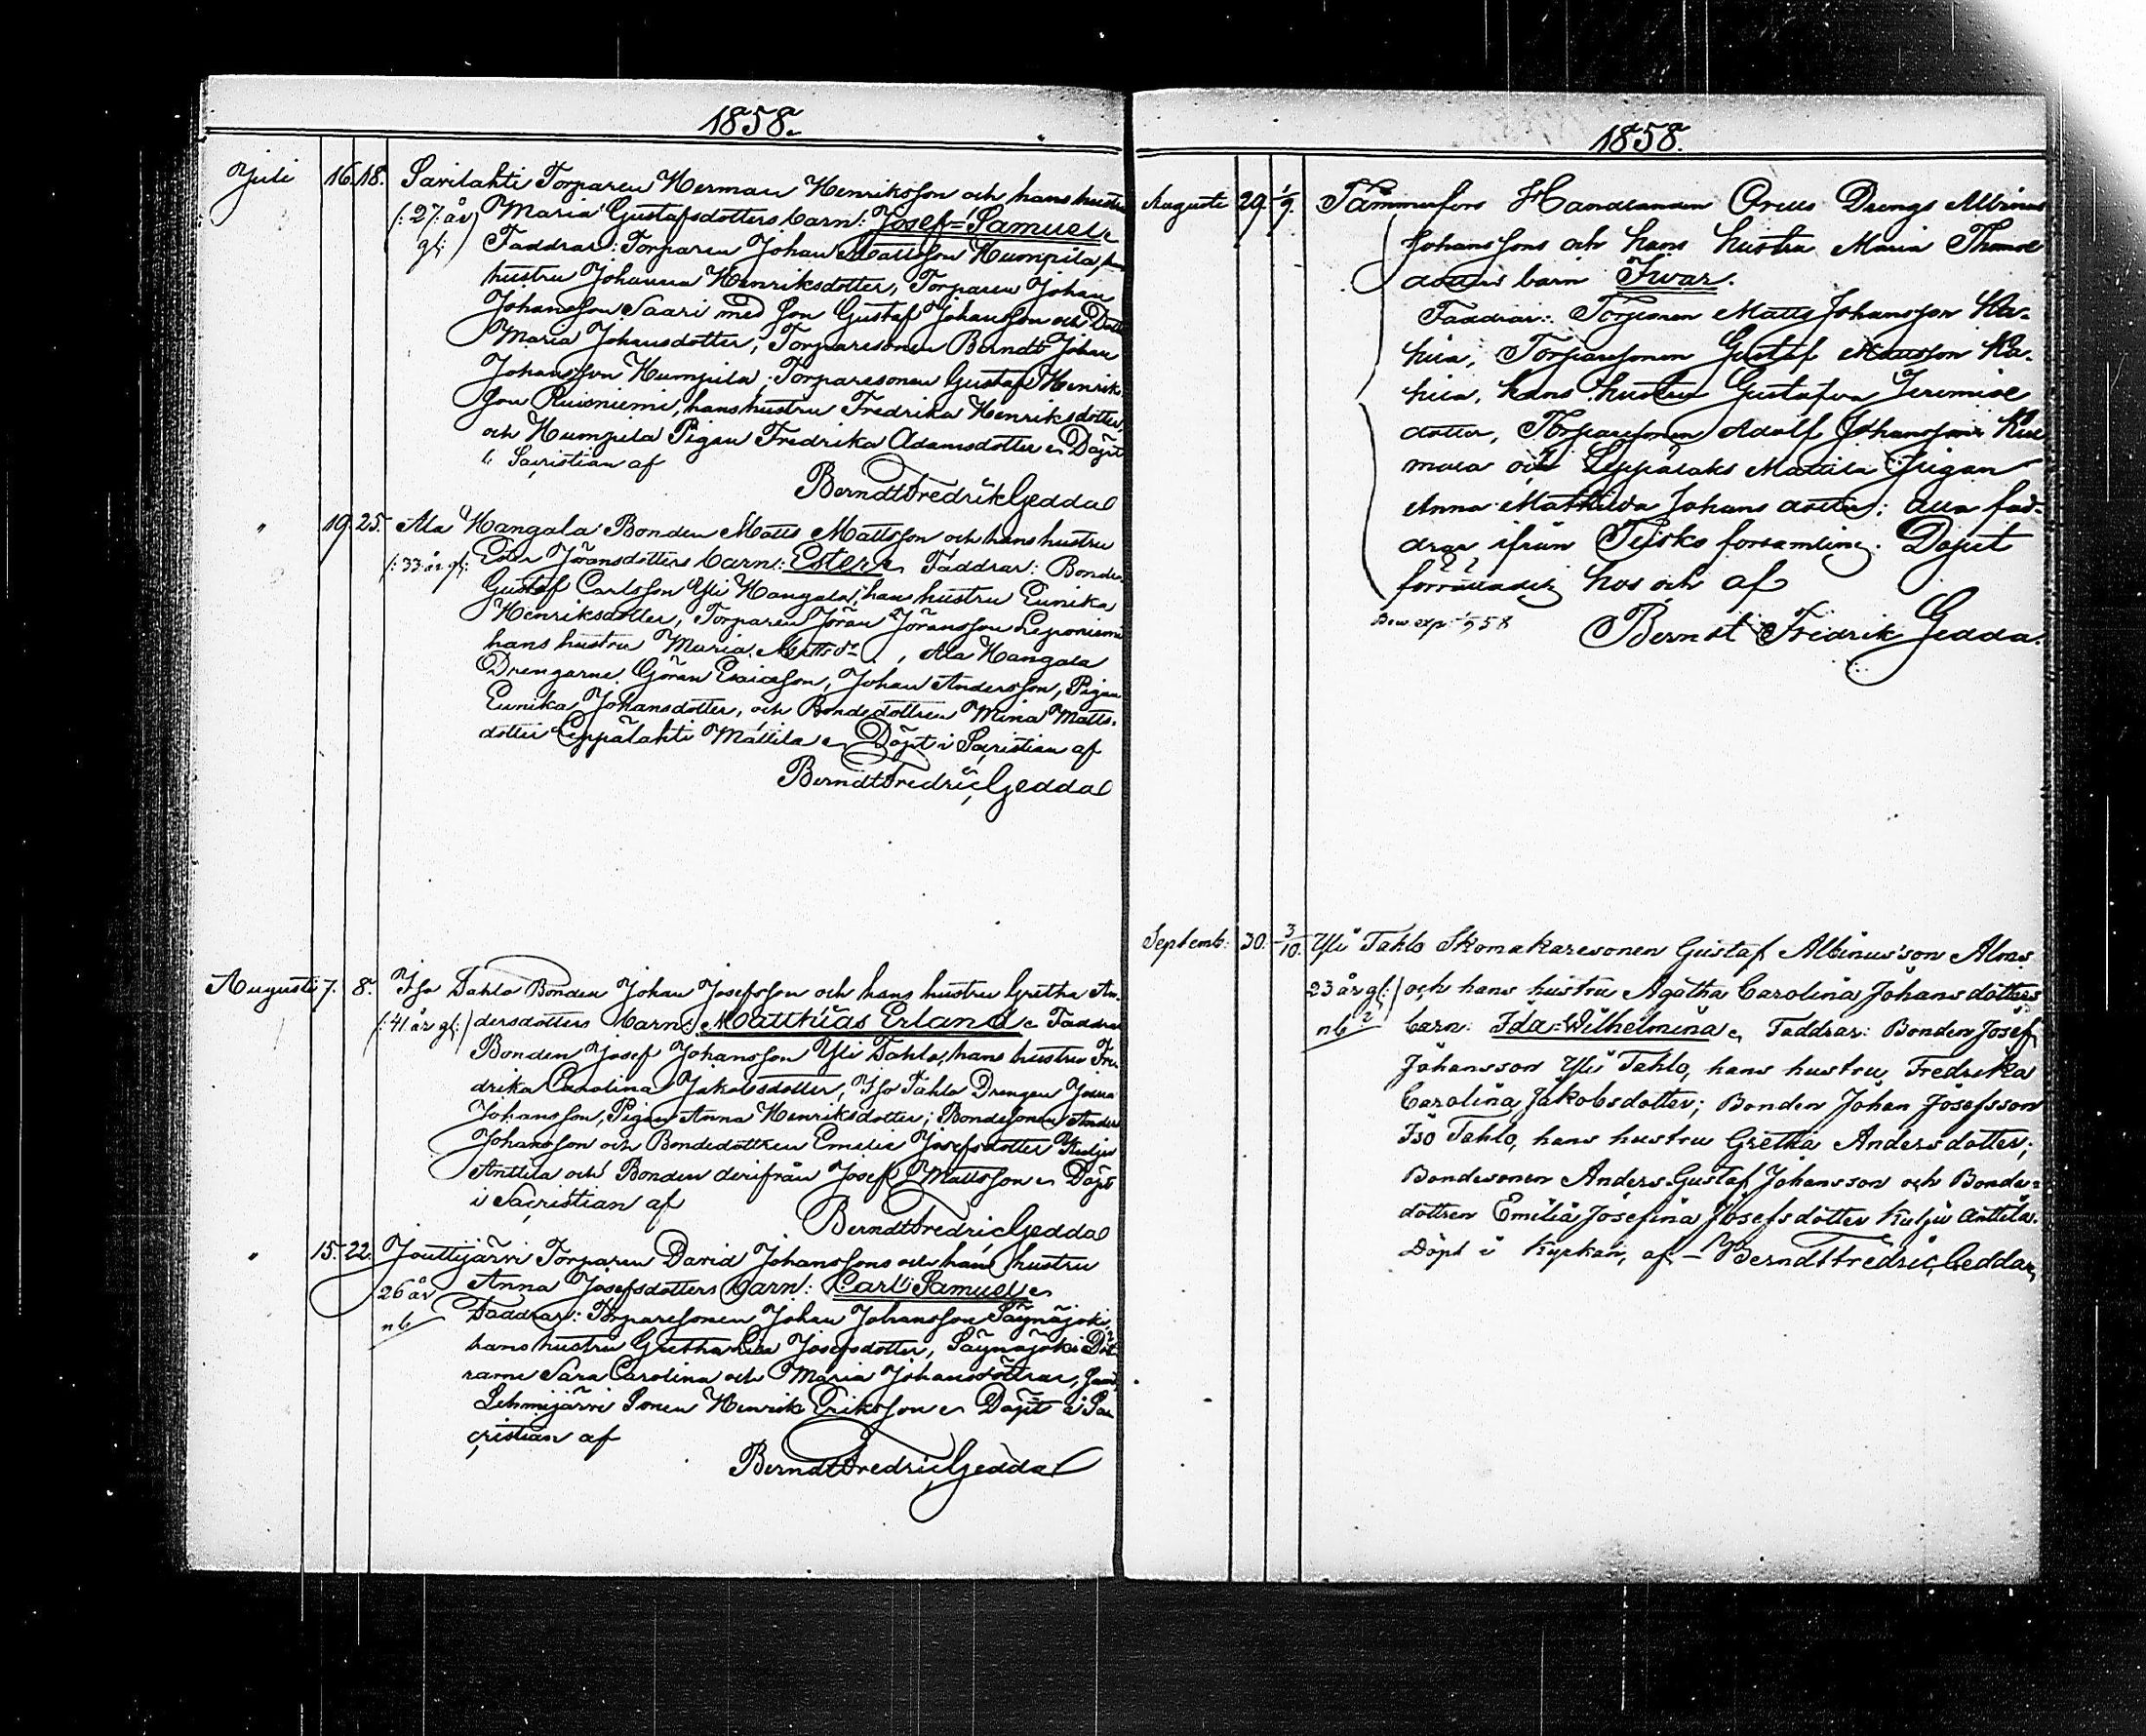 1858.
Juli 16. 18. Savilahti Torparen Herman Henriksson och hans hustru
(: 27 år Maria Gustafsdotters barn: Josef=Samuel
gl:) Faddrar: Torparen Johan Mattsson Humpila,
hustru Johanna Henriksdotter, Torparen Johan
Johansson Saari med Son Gustaf Johansson och Dott
Maria Johansdotter, Torparesonen Berndt Johan
Johansson Humpila, Torparesonen Gustaf Henrik
son Ruisniemi, hans hustru Fredrika Henriksdotter,
och Humpila Pigan Fredrika Adamsdotter Döpt
i Sacristian af
Berndt Fredrik Gedda
" 19. 25. Ala Hangala Bonden Matts Mattsson och hans hustru
(: 33 år gl: Eva Jöransdotters barn: Ester Faddrar: Bonden
Gustaf Carlsson Yli Hangala, hans hustru Eunika
Henriksdotter, Torparen Jöran Jöransson Leponiemi
hans hustru Maria Mattsdr, Ala Hangala
Drengarne Göran Esaiasson, Johan Andersson, Pigan
Eunika Johansdotter, och Bondedottren Mina Matts-
dotter Leppälahti Mattila Döpt i Sacristian af
Berndt Fredric Gedda
Augusti 7. 8. Iso Tahlo Bonden Johan Josefsson och hans hustru Gretha An-
(: 41 år gl:) dersdotters barn: Matthias Erland Faddrar
Bonden Josef Johansson Yli Tahlo, hans hustru Fre-
drika Carolina Jakobsdotter, Iso Tahlo Drengen Josua
Johansson, Pigan Anna Henriksdotter; Bondesonen Anders
Johansson och Bondedottren Emelie Josefsdotter Kulju
Anttila och Bonden derifrån Josef Mattsson Döpt
i Sacristian af
Berndt Fredric Gedda
" 15. 22. Jouttijärvi Torparen David Johanssons och hans hustru
26 år Anna Josefsdotters barn: Carl Samuel
nb Faddrar: Torparesonen Johan Johansson Säynäjoki,
hans hustru Gretha Lisa Josefsdotter, Säynäjoki Döt
rarne Sara Carolina och Maria Johansdöttrar,
Lehmijärvi Sonen Henrik Eriksson Döpt i Sa
cristian af
Berndt Fredric Gedda
1858.
Augusti 29. 1/9. Tammerfors Handlanden Drengs Albinus
Johanssons och hans hustru Maria Thomæ
dotters barn Iwar.
Faddrar: Torparen Matts Johansson Ka-
hila, Torparesonen Gustaf Mattsson Ka-
hila, hans hustru Gustafva Jeremiæ
dotter, Torparesonen Adolf Johansson
och Leppälaks Mattila Pigan
Anna Mathilda Johansdotter: alla fad-
drar ifrån Teisko församling. Dopet
förrättades hos och af
Bew. exp. 1/9 58 Berndt Fredrik Gedda.
Septemb: 30. 3/10. Yli Tahlo Skomakaresonen Gustaf Albinus'son Alms
23 år gl:) och hans hustru Agatha Carolina Johansdotters
nb barn: Ida=Wilhelmina Faddrar: Bonden Josef
Johansson Yli Tahlo, hans hustru Fredrika
Carolina Jakobsdotter; Bonden Johan Josefsson
Iso Tahlo, hans hustru Gretha Andersdotter;
Bondesonen Anders Gustaf Johansson och Bonde=
dottren Emilia Josefina Josefsdotter Kulju Anttila.
Döpt i Kyrkan, af — Berndt Fredric Gedda